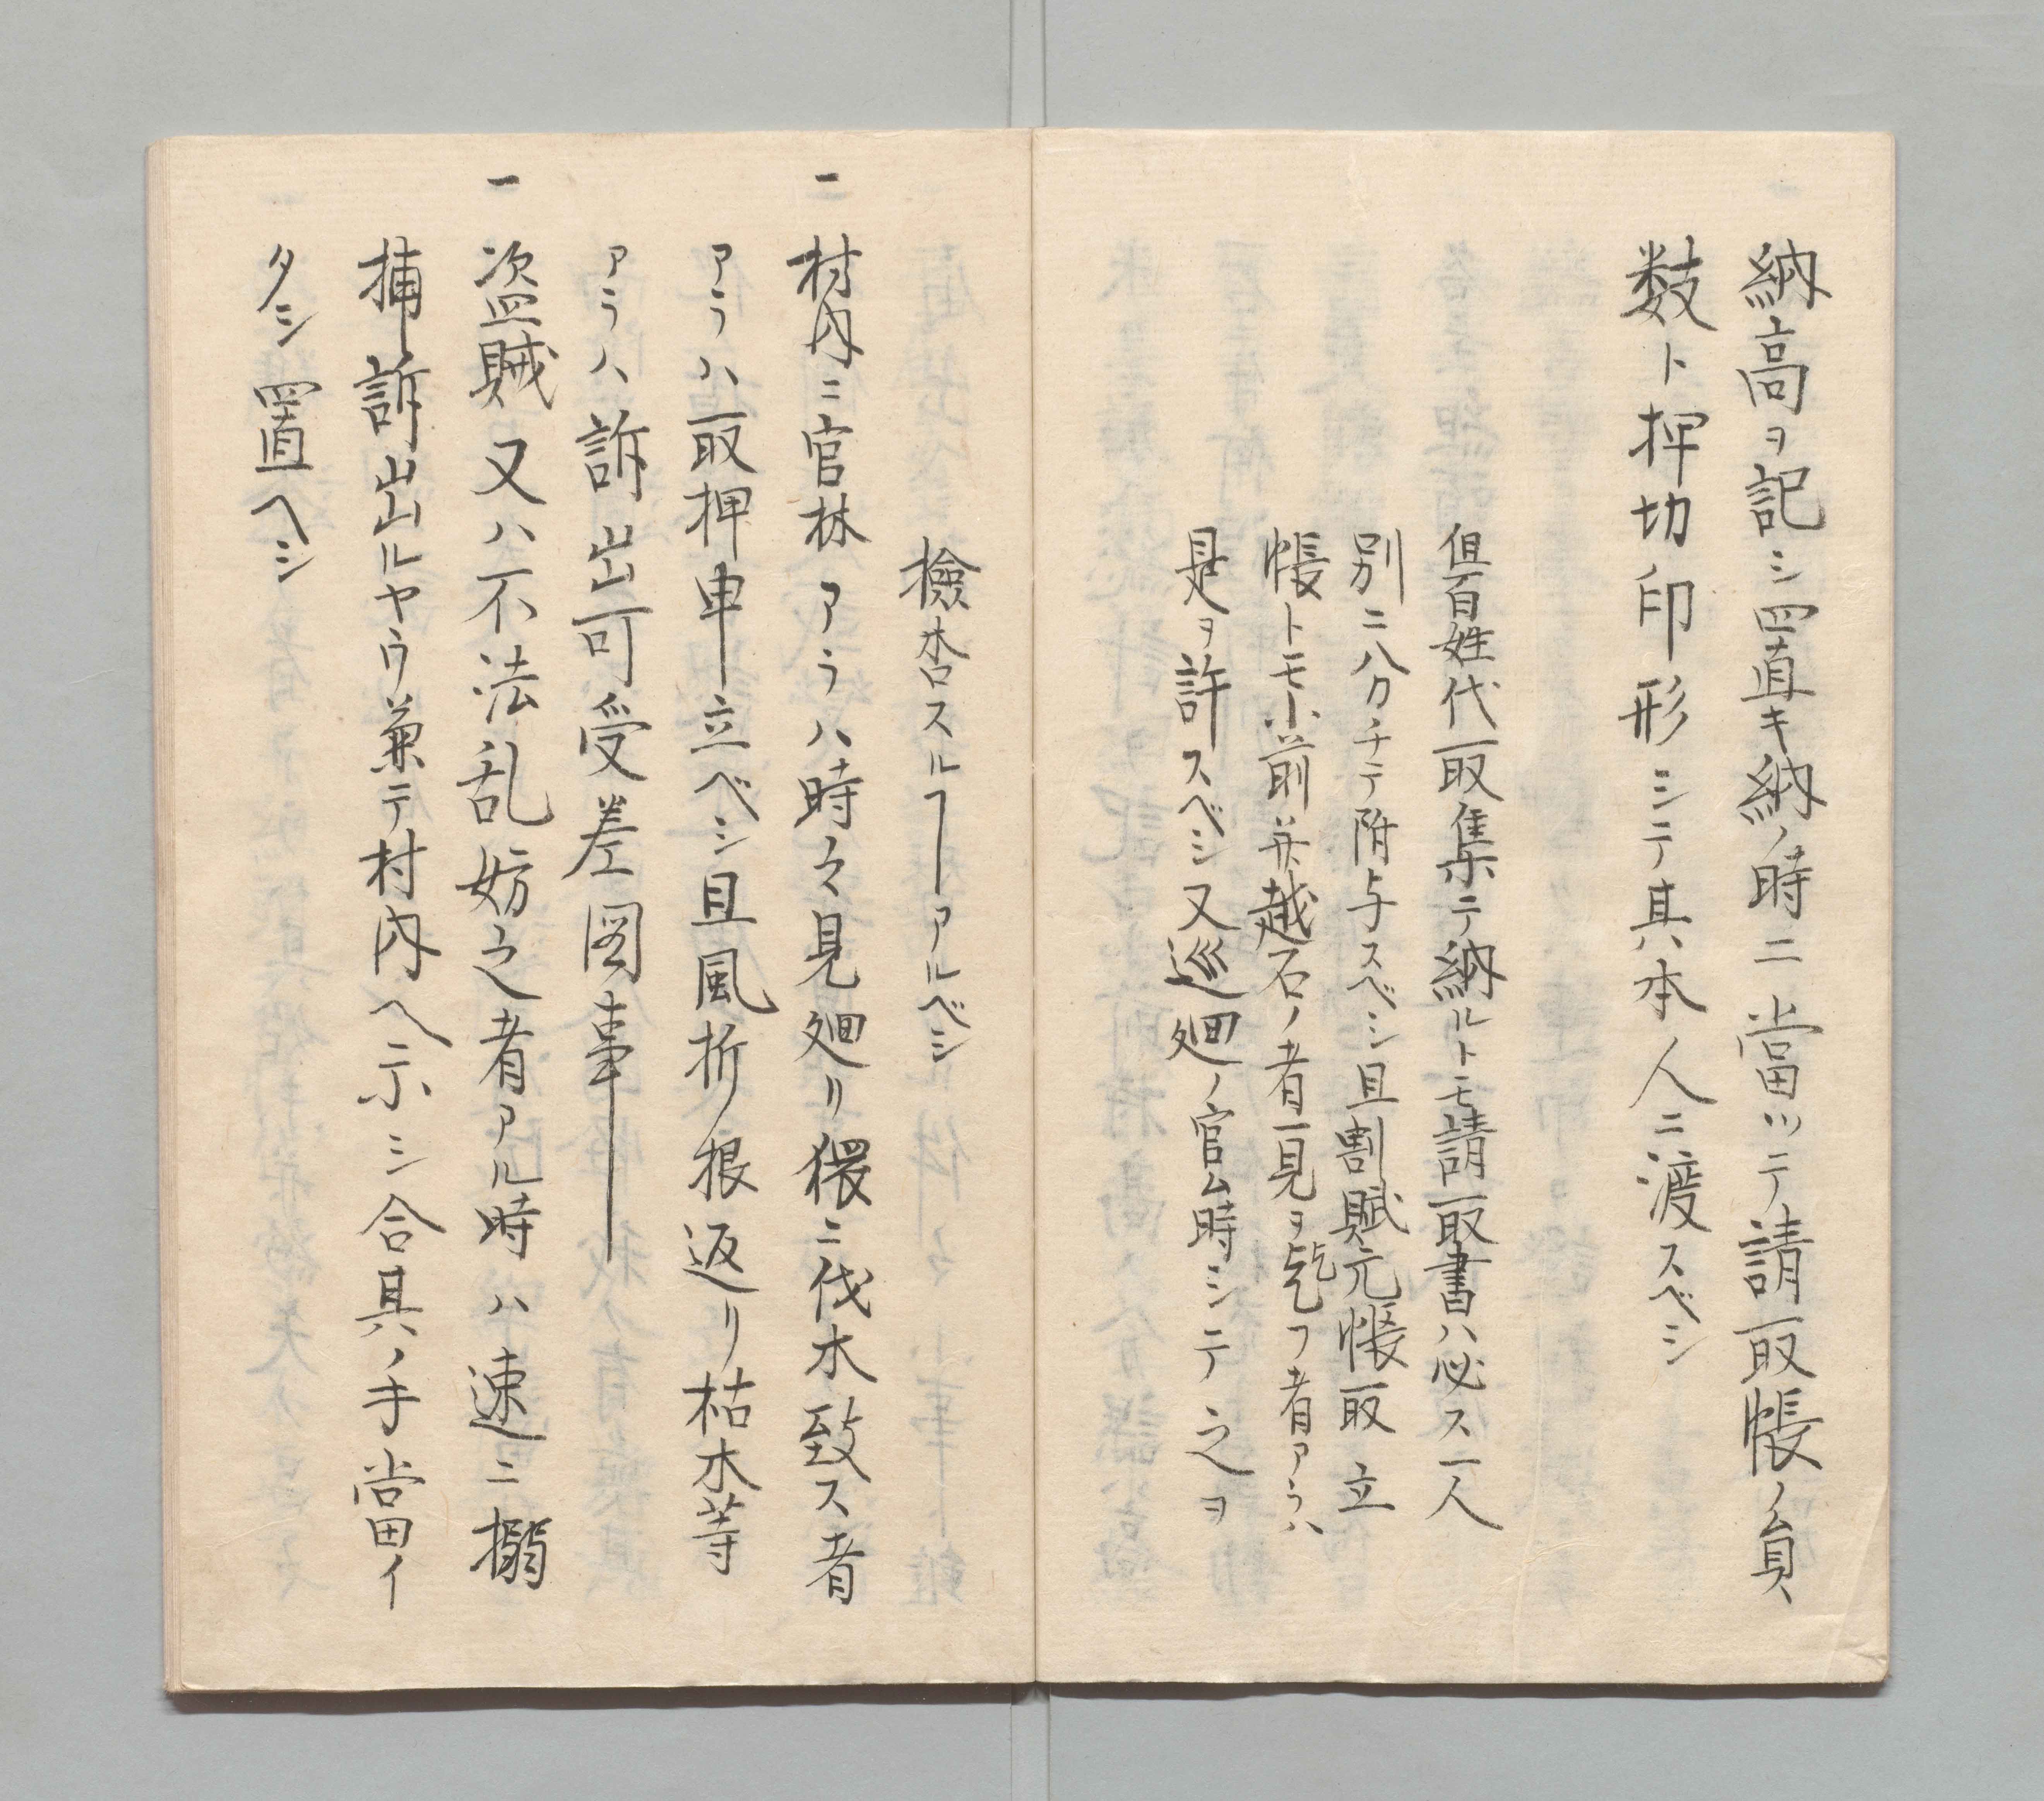 納高ヲ記シ置キ納ノ時ニ當ツテ請取帳ノ員
数ト押切印形シテ其本人ニ渡スベシ
但百姓代取集テ納ルトモ請取書ハ必ス一人
別ニ八カチテ附与スベシ且割賦元帳取立
帳トモ小前并越石ノ者一見ヲ乞フ者アラハ
是ヲ許スベシ又巡廻ノ官ム時シテ之ヲ
檢杏スルヿアルベシ
一 村内ニ官林アラハ時々見廻リ猥ニ伐木致ス者
アラハ取押申立ベシ且風折根返リ枯木等
アラハ訴出可受差図事
一 盗賊又ハ不法乱妨之者アル時ハ速ニ搦
捕訴出ルヤウ兼テ村内ヘ示シ合其ノ手當イ
タシ置ヘシ